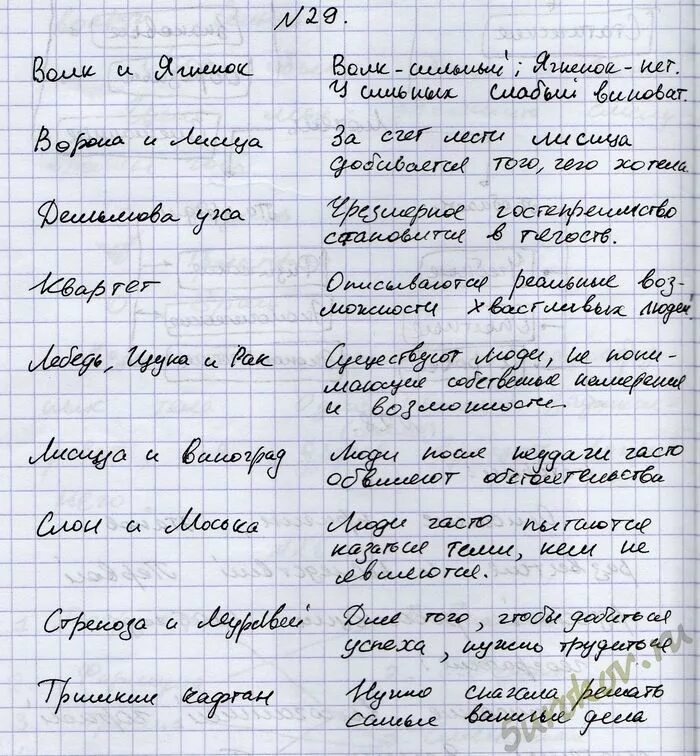 №29.
Волк и Ягненок
Волк - сильный; Ягненок - нет.
У сильных слабый виноват.
Ворона и Лисица
За счет лести лисица
добивается того, чего хотела
Демьянова уха
Чрезмерное гостеприимство
становится в тягость.
Квартет
Описываются реальные воз-
можности хвастливых людей.
Лебедь, Щука и Рак
Существуют люди, не пони-
мающие собственные намерения
и возможности
Лисица и виноград
Люди после неудачи часто
обвиняют обстоятельства
Слон и Моська
Люди часто пытаются
казаться теми, кем не
являются.
Стрекоза и Муравей
Для того, чтобы добиться
успеха, нужно трудиться
Тришкин кафтан
Нужно сначала решать
самые важные дела